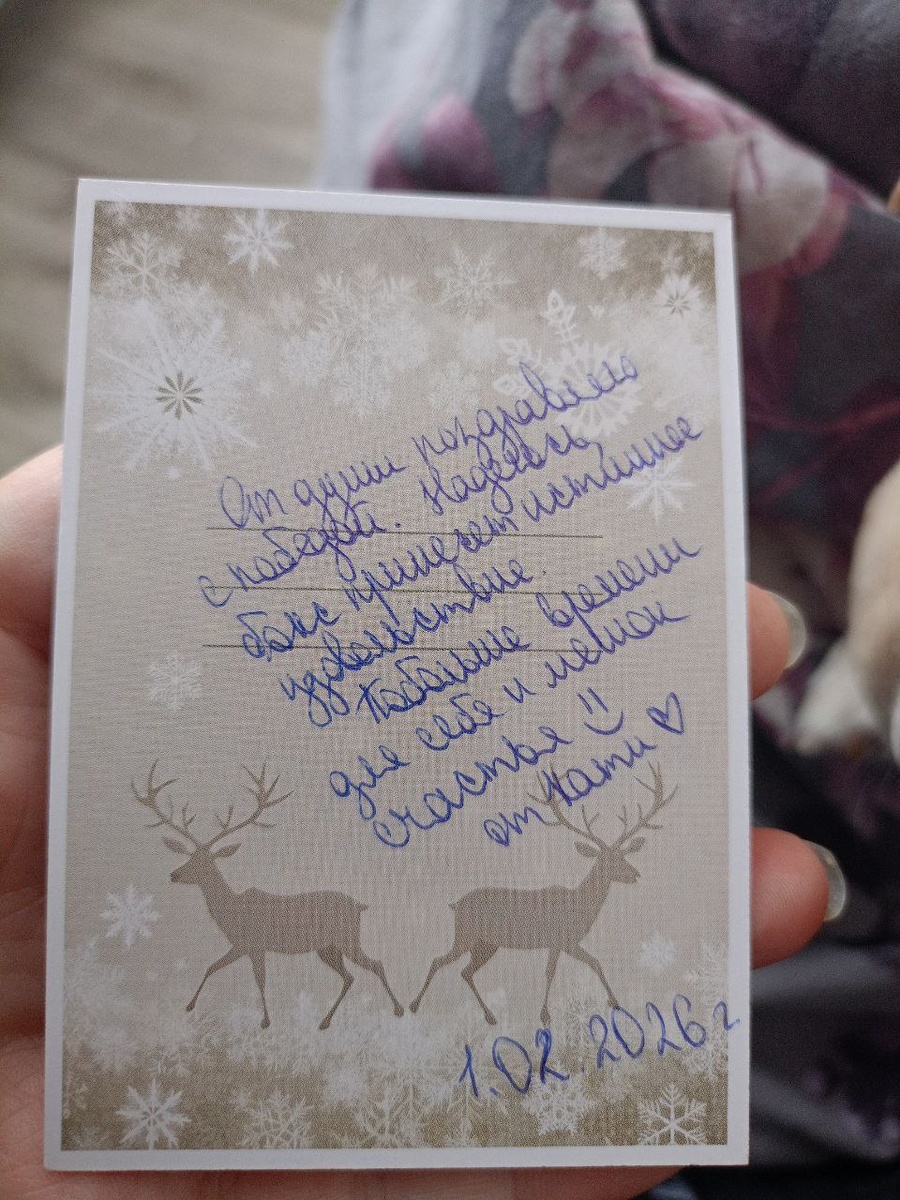 От души поздравляю
с победой. Надеюсь,
бокс принесет истинное
удовольствие.
Побольше времени
для себя и мешок
счастья !!
от Кати ♡
1.02.2026 г